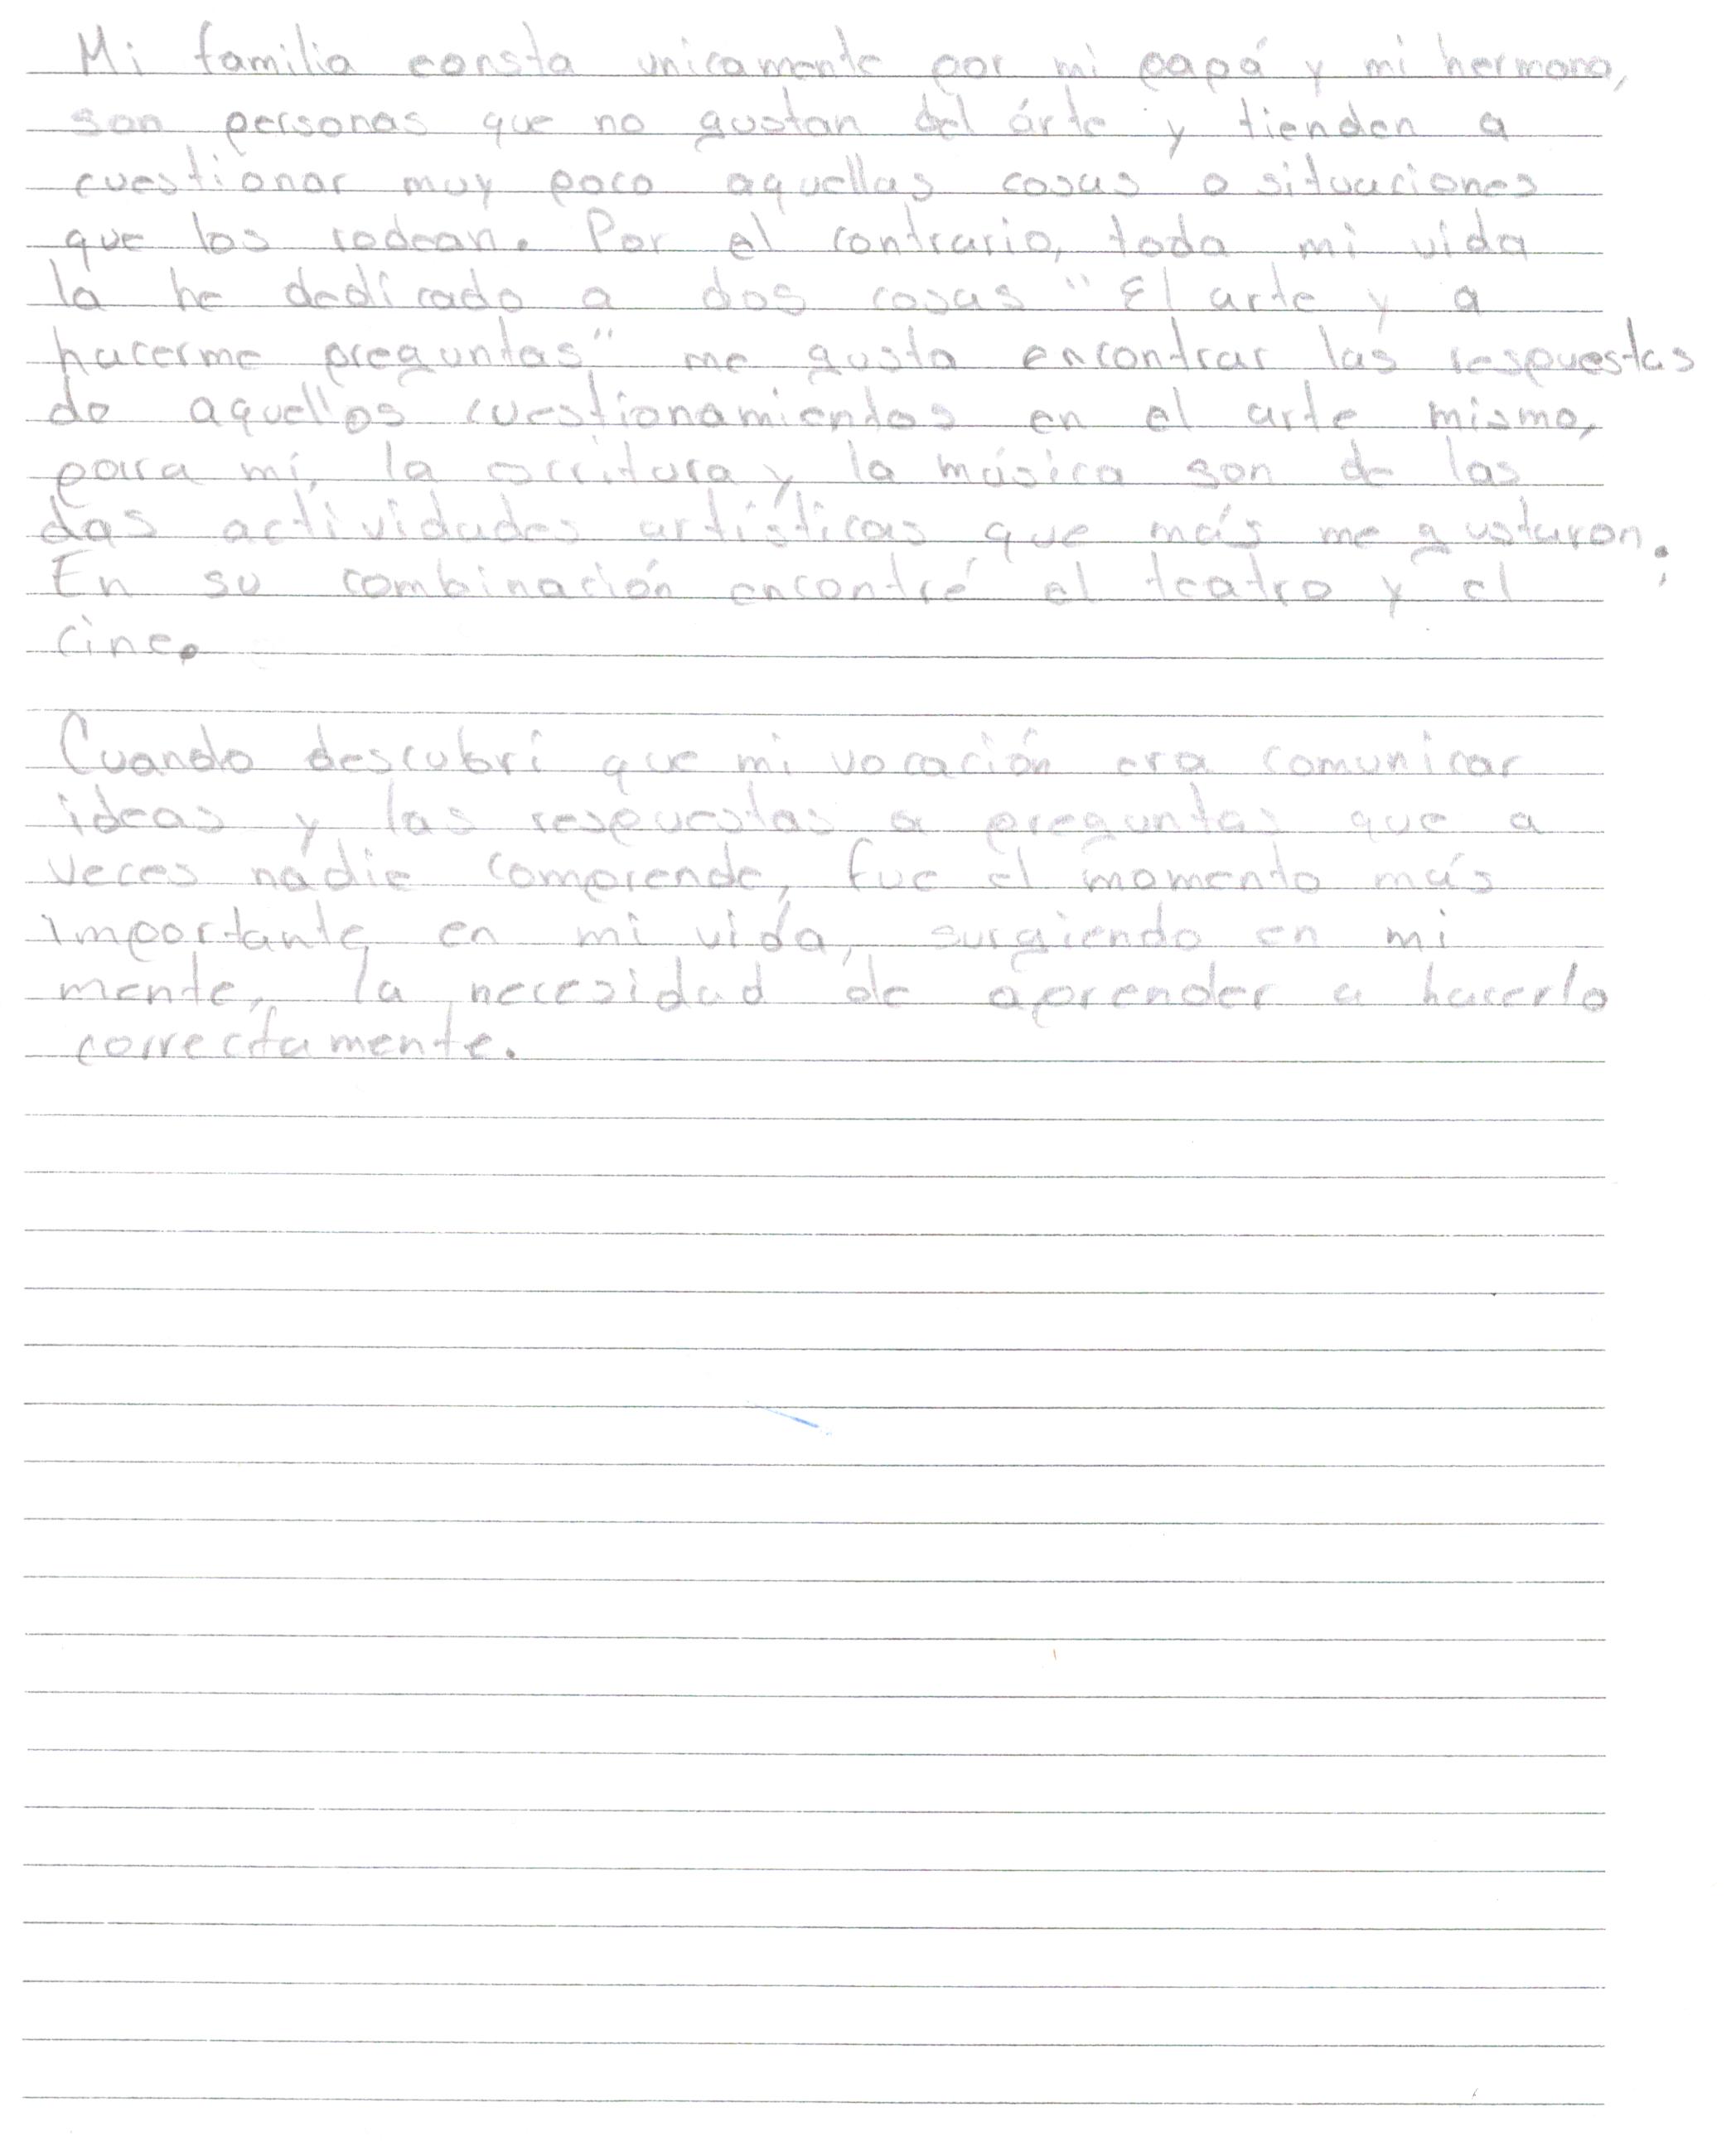 Mi familia consta unicamente por mi papá y mi hermano,
son personas que no gustan del árte y tienden a
cuestionar muy poco aquellas cosas o situaciones
que los rodean. Por el contrario, toda mi vida
la he dedicado a dos cosas "El arte y a
hacerme preguntas" me gusta encontrar las respuestas
de aquellos cuestionamientos en el arte mismo,
para mí, la escritura y la música son de las
dos actividades artísticas que más me gustaron.
En su combinación encontré el teatro y el
cine.
Cuando descubrí que mi vocación era comunicar
ideas y las respuestas a preguntas que a
veces nadie comprende, fue el momento más
importante en mi vida, surgiendo en mi
mente, la necesidad de aprender a hacerlo
correctamente.